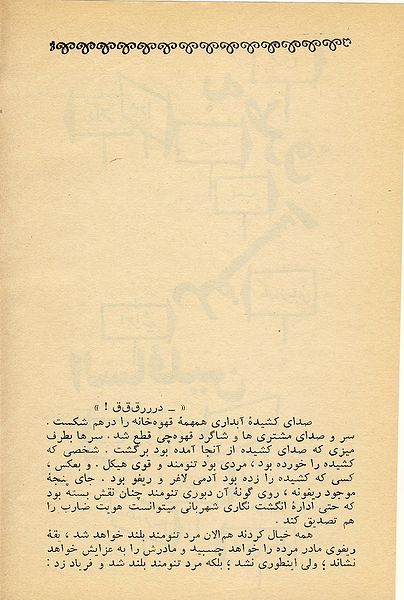 « ـ درررقققق ! »
صدای کشیدهٔ آبداری همهمهٔ قهوه‌خانه را درهم شکست .
سر و صدای مشتری ها و شاگرد قهوه‌چی قطع شد . سرها بطرف
میزی که صدای کشیده از آنجا آمده بود برگشت . شخصی که
کشیده را خورده بود ، مردی بود تنومند و قوی هیکل . و بعکس ،
کسی که کشیده را زده بود آدمی لاغر و ریغو بود . جای پنجهٔ
موجود ریغونه ، روی گونهٔ آن دیوری تنومند چنان نقش بسته بود
که حتی ادارهٔ انگشت نگاری شهربانی میتوانست هویت ضارب را
هم تصدیق کند .
همه خیال کردند هم‌الان مرد تنومند بلند خواهد شد ، یقهٔ
ریغوی مادر مرده را خواهد چسبید و مادرش را به عزایش خواهد
نشاند ؛ ولی اینطوری نشد ؛ بلکه مرد تنومند بلند شد و فریاد زد :